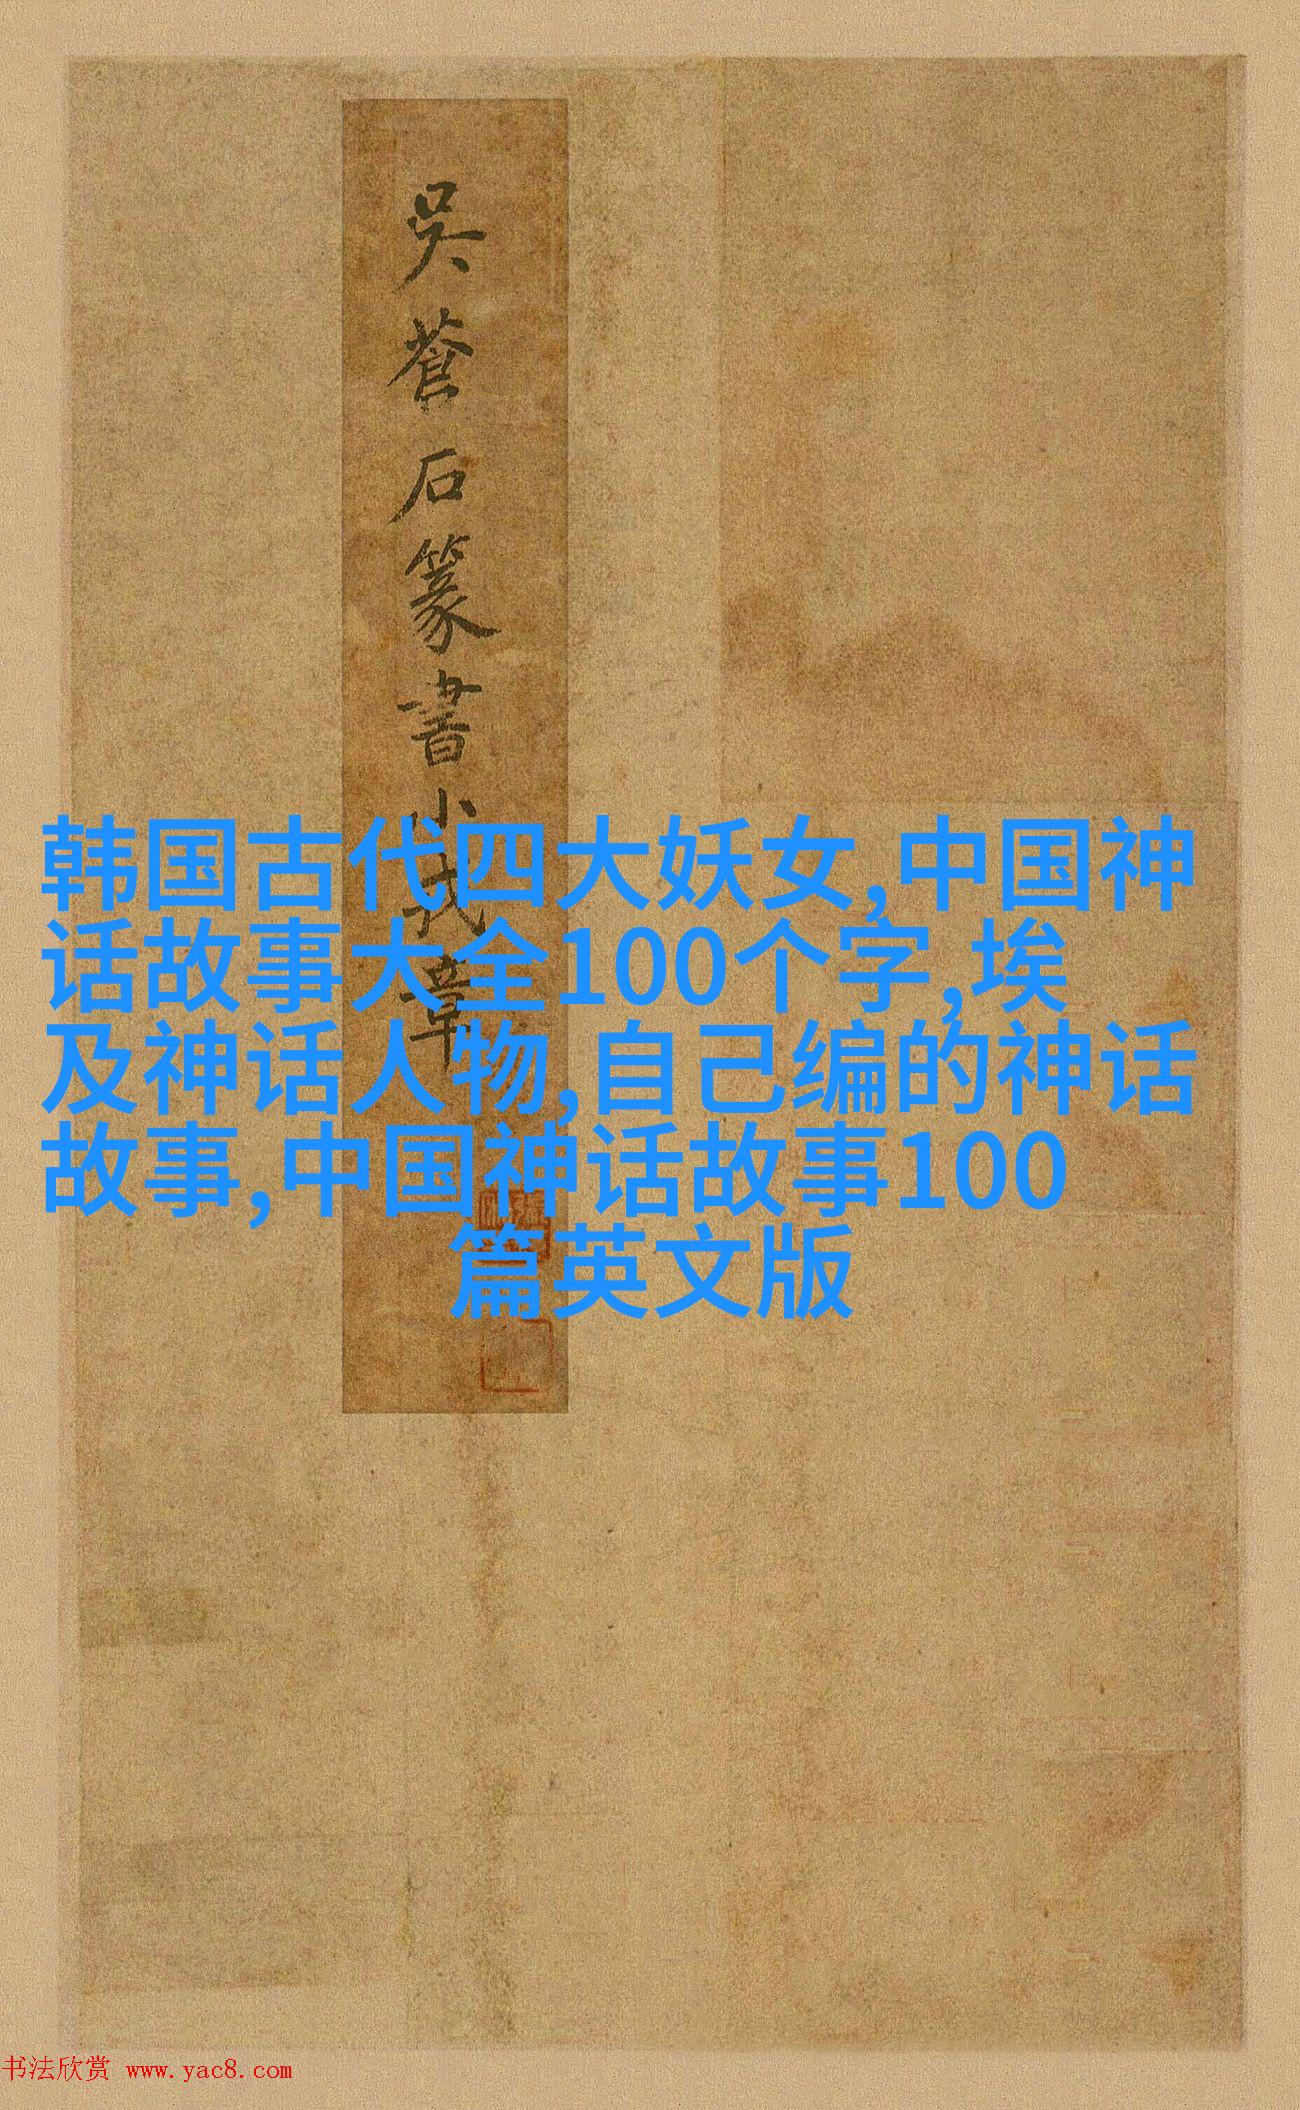 吳蒼石篆書小戎章
韩国古代四大妖女,中国神
话故事大全100个字,埃
及神话人物,自己编的神话
故事,中国神话故事100
篇英文版
书法欣赏 www.yac8.com